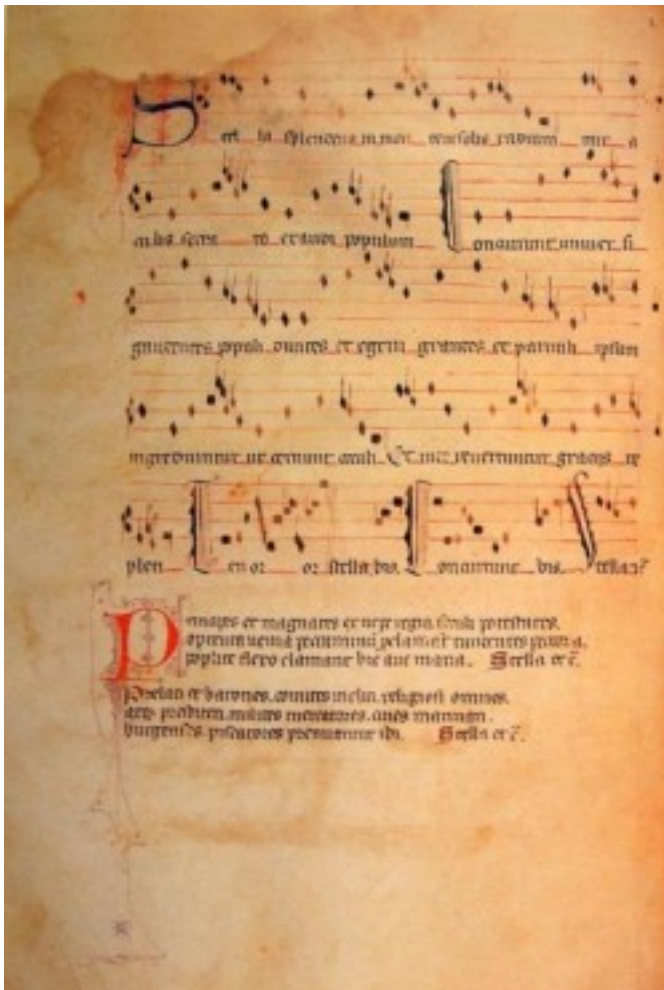 Stel la splendens in mon te ut solis radium mir a
culis serra to exaudi populum oncurrunt univer si
gaudentes populi divites et egeni grandes et parvuli ipsum
ingrediuntur ut cernunt oculi Et inde revertuntur graciis re
pleti stella bis. oncurrunt bis.
Principes et magnates ex stirpe regia seculi potestates.
optenta venia peccaminum pclamant tundentes pectora.
poplite flexo clamant hic ave maria. Stella et c̄.
Prelati et barones. comites incliti. religiosi omnes.
atq presbiteri. milites mercatores. cives marinari.
burgenses. piscatores premiantur ibi. Stella et c̄.